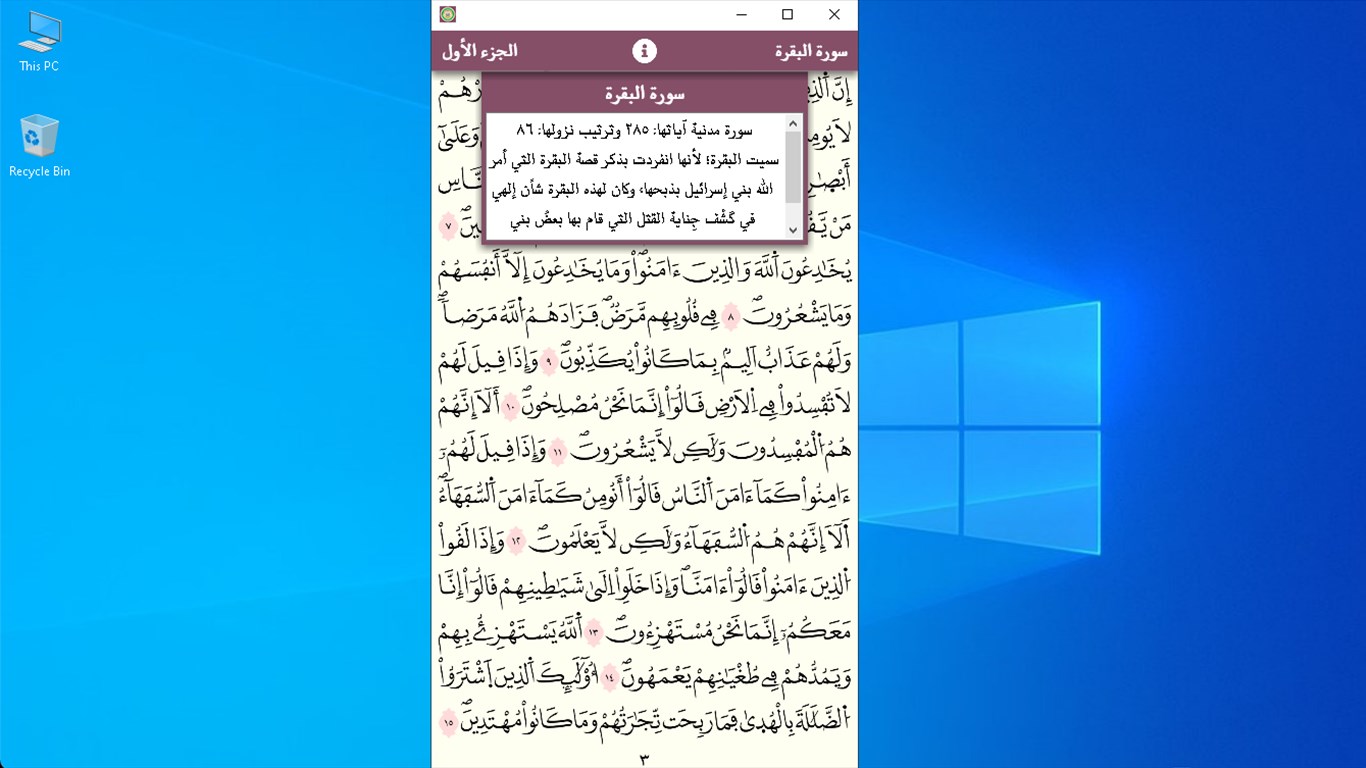 This PC
Recycle Bin
سورة البقرة
الجزء الأول
سورة البقرة
سورة مدنية آياتها: ٢٨٥ وترتيب نزولها: ٨٦
سميت البقرة؛ لأنها انفردت بذكر قصة البقرة التي أمر
الله بني إسرائيل بذبحها، وكان لهذه البقرة شأن إلهي
في كَشْف جِناية القتل التي قام بها بعضُ بني
إِنَّ
لَا
وَعَلَىٰٓ
مَنْ يَّقُ ٧
يُخَٰدِعُونَ ٱللَّهَ وَالذِينَ ءَامَنُواْ وَمَا يُخَٰدِعُونَ إِلَّآ أَنفُسَهُمْ
وَمَا يَشْعُرُونَۖ ٨ فِے قُلُوبِهِم مَّرَضٞۖ فَزَادَهُمُ اللَّهُ مَرَضاٗۖ
وَلَهُمْ عَذَابٌ اَلِيمُۢ بِمَا كَانُواْ يُكَذِّبُونَۖ ٩ وَإِذَا قِيلَ لَهُمْ
لَا تُفْسِدُواْ فِے اِلَارْضِ قَالُوٓاْ إِنَّمَا نَحْنُ مُصْلِحُونَۖ ١٠ أَلَآ إِنَّهُمْ
هُمُ اُلْمُفْسِدُونَ وَلَٰكِن لَّا يَشْعُرُونَۖ ١١ وَإِذَا قِيلَ لَهُمُۥٓ
ءَامِنُواْ كَمَآ ءَامَنَ اَلنَّاسُ قَالُوٓاْ أَنُومِنُ كَمَآ ءَامَنَ اَلسُّفَهَآءُۖ
أَلَآ إِنَّهُمْ هُمُ اُلسُّفَهَآءُ وَلَٰكِن لَّا يَعْلَمُونَۖ ١٢ وَإِذَا لَقُواْ
اُلذِينَ ءَامَنُواْ قَالُوٓاْ ءَامَنَّاۖ وَإِذَا خَلَوِاْ اِلَىٰ شَيَٰطِينِهِمْ قَالُوٓاْ إِنَّا
مَعَكُمُۥٓ إِنَّمَا نَحْنُ مُسْتَهْزِءُونَۖ ١٣ اَللَّهُ يَسْتَهْزِۓُ بِهِمْ
وَيَمُدُّهُمْ فِے طُغْيَٰنِهِمْ يَعْمَهُونَۖ ١٤ أُوْلَٰٓئِكَ اَلذِينَ اَشْتَرَوُاْ
اُلضَّلَٰلَةَ بِالْهُد۪يٰ فَمَا رَبِحَت تِّجَٰرَتُهُمْ وَمَا كَانُواْ مُهْتَدِينَۖ ١٥
٣